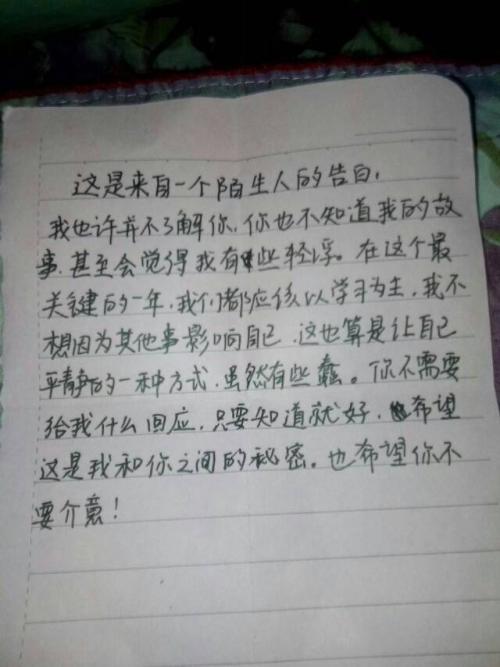 这是来自一个陌生人的告白,
我也许并不了解你,你也不知道我的故
事,甚至会觉得我有些轻浮。在这个最
关键的一年,我们都应该以学习为主,我不
想因为其他事影响自己,这也算是让自己
平静的一种方式,虽然有些蠢。你不需要
给我什么回应,只要知道就好,也希望
这是我和你之间的秘密。也希望你不
要介意!